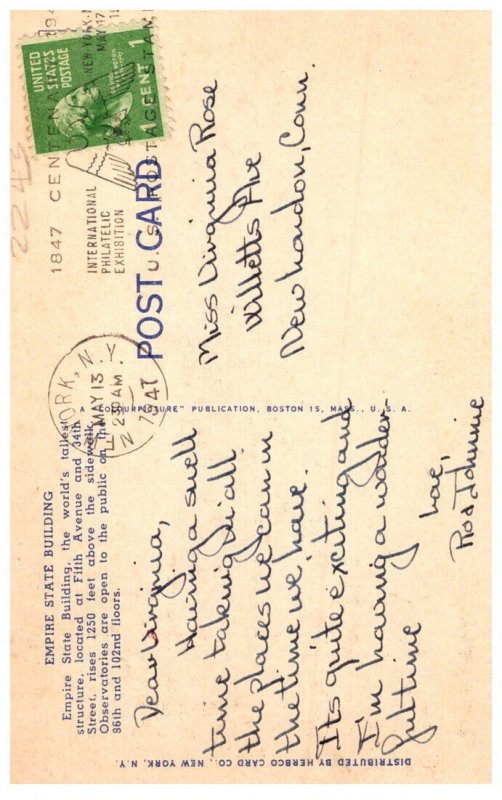 EMPIRE STATE BUILDING
Empire State Building, the world's tallest
structure, located at Fifth Avenue and 34th
Street, rises 1250 feet above the sidewalk.
Observatories are open to the public on the
86th and 102nd floors.
Dear Virginia,
Having a swell
time taking in all
the places we can in
the time we have.
It's quite exciting and
I'm having a wonder-
ful time
Love,
DISTRIBUTED BY HERBCO CARD CO., NEW YORK, N.Y.
A "COLOURPICTURE" PUBLICATION, BOSTON 15, MASS., U.S.A.
YORK, N.Y.
MAY 13
2 30 AM
1947
1847 CENTENA
U.S. POSTAGE STAM
INTERNATIONAL
PHILATELIC
EXHIBITION
NEW YORK, N
MAY 17
UNITED
STATES
POSTAGE
1
CENT
POST CARD
Miss Virginia Rose
Willetts Ave
New London, Conn.